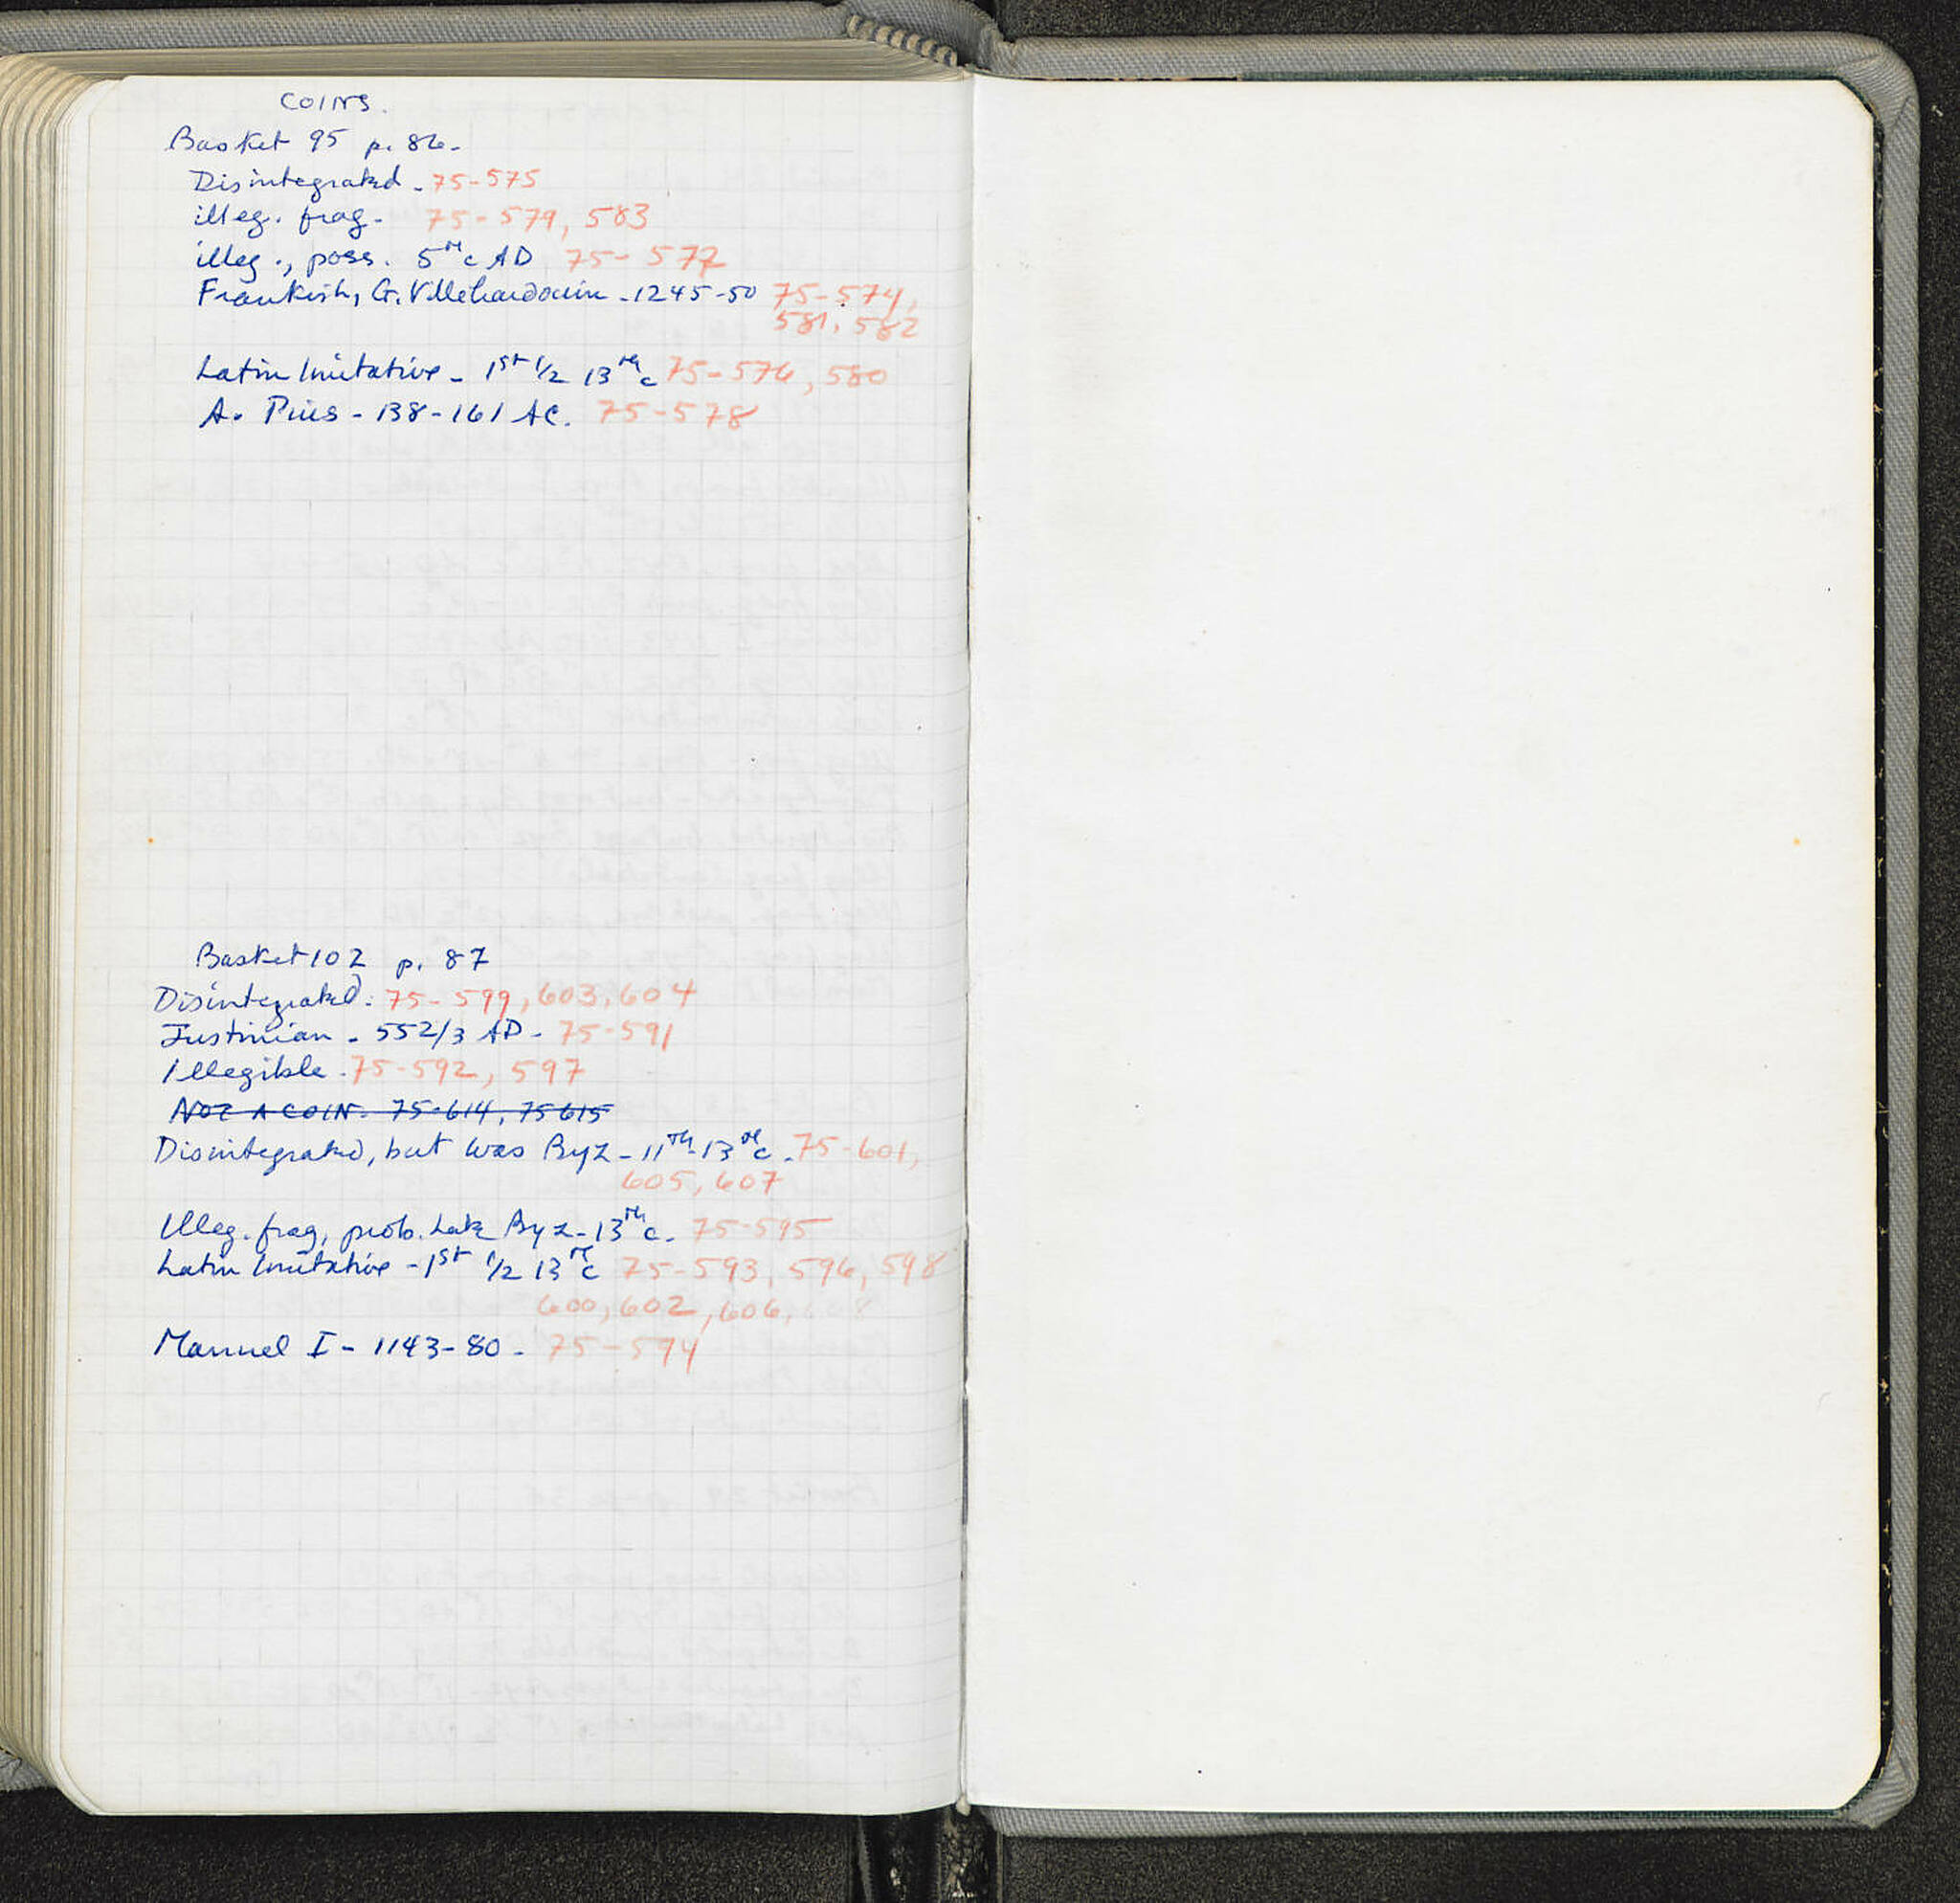 COINS.
Basket 95 p. 86-
Disintegrated - 75-575
illeg. frag - 75-579, 583
illeg., poss. 5th c AD 75-577
Frankish, G. Villehardouin - 1245-50 75-574,
581, 582
Latin Imitative - 1st 1/2 13th c 75-576, 580
A. Pius - 138-161 AC. 75-578
Basket 102 p. 87
Disintegrated: 75-599, 603, 604
Justinian - 552/3 AD - 75-591
Illegible - 75-592, 597
NOT A COIN. 75-614, 75 615
Disintegrated, but was Byz - 11th-13th c. 75-601,
605, 607
Illeg. frag, prob. Late Byz - 13th c. 75-595
Latin Imitative - 1st 1/2 13th c 75-593, 596, 598
600, 602, 606, 608
Manuel I - 1143-80 - 75-594